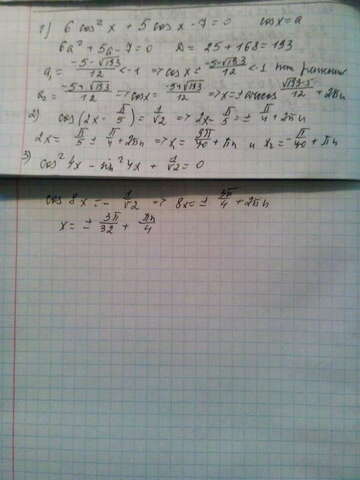 1) 6 cos²x + 5 cos x - 7 = 0   cos x = a
6a² + 5a - 7 = 0   D = 25 + 168 = 193
a₁ = (-5-√193)/12 < -1 => cos x = (-5-√193)/12 < -1 нет решения
a₂ = (-5+√193)/12 => cos x = (-5+√193)/12 => x = ± arccos (√193-5)/12 + 2πn
2) cos(2x - π/5) = 1/√2 => 2x - π/5 = ± π/4 + 2πn
2x = π/5 ± π/4 + 2πn => x₁ = 9π/40 + πn и x₂ = -π/40 + πn
3) cos²4x - sin²4x + 1/√2 = 0
cos 8x = - 1/√2 => 8x = ± 3π/4 + 2πn
x = ± 3π/32 + πn/4